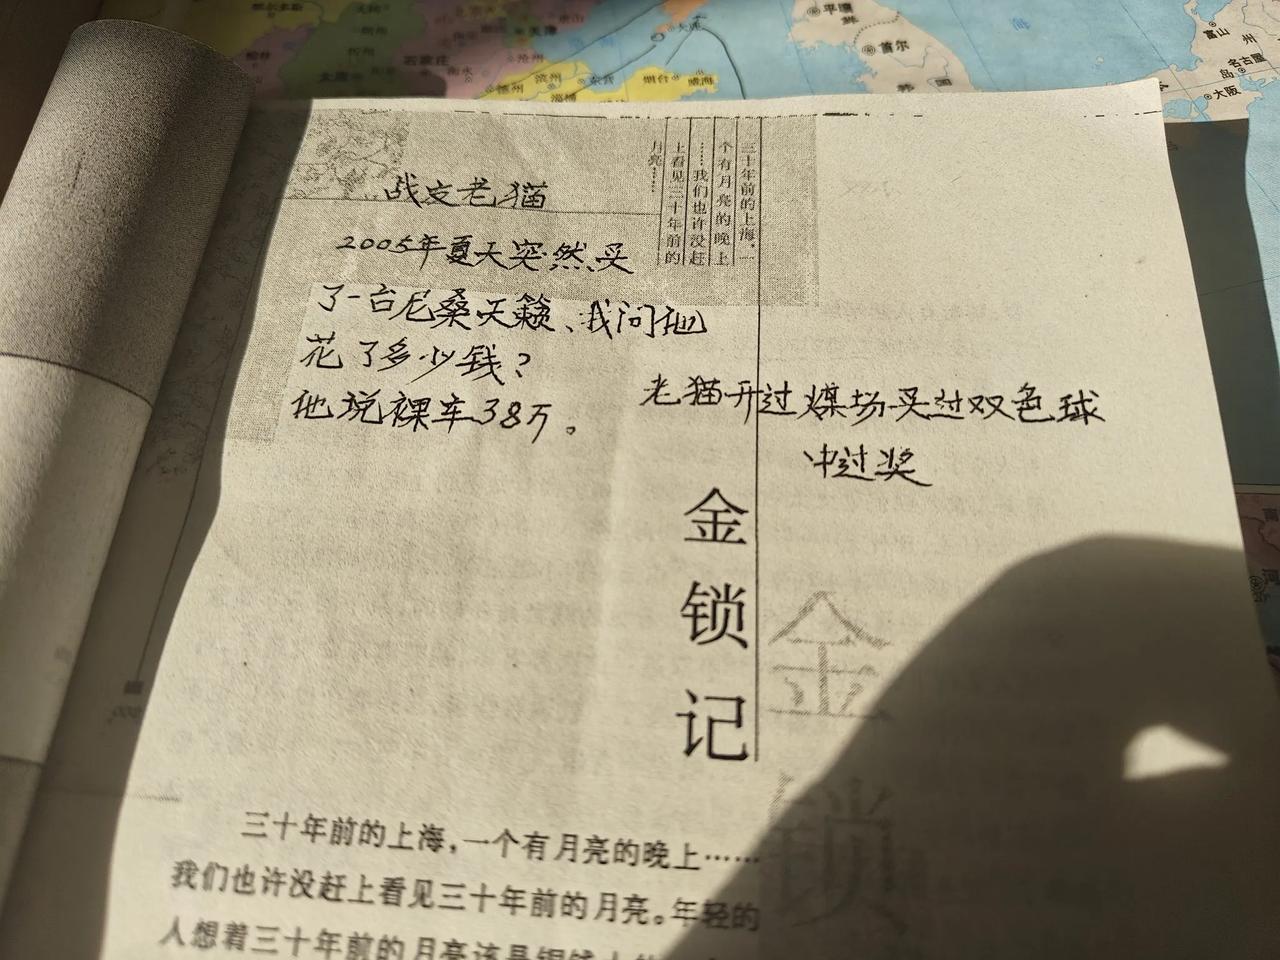 鄂尔多斯
石家庄
沧州
德州
滨州
东营
淄博
烟台
威海
大连
天津
平壤
首尔
韩国
富山
名古屋
大阪
三十年前的上海，一
个有月亮的晚上
……我们也许没赶
上看见三十年前的
月亮……
战友老猫
2005年夏天突然买
了一台尼桑天籁、我问他
花了多少钱？
他说裸车38万。
老猫开过煤场买过双色球
冲过奖
金锁记
金锁
三十年前的上海，一个有月亮的晚上……
我们也许没赶上看见三十年前的月亮。年轻的
人想着三十年前的月亮该是铜钱大的